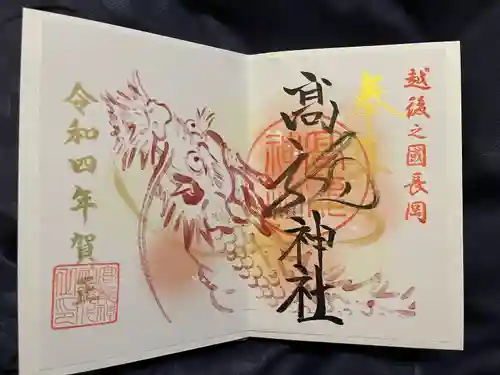 越後之國長岡
奉拝
高龍神社
令和四年賀正